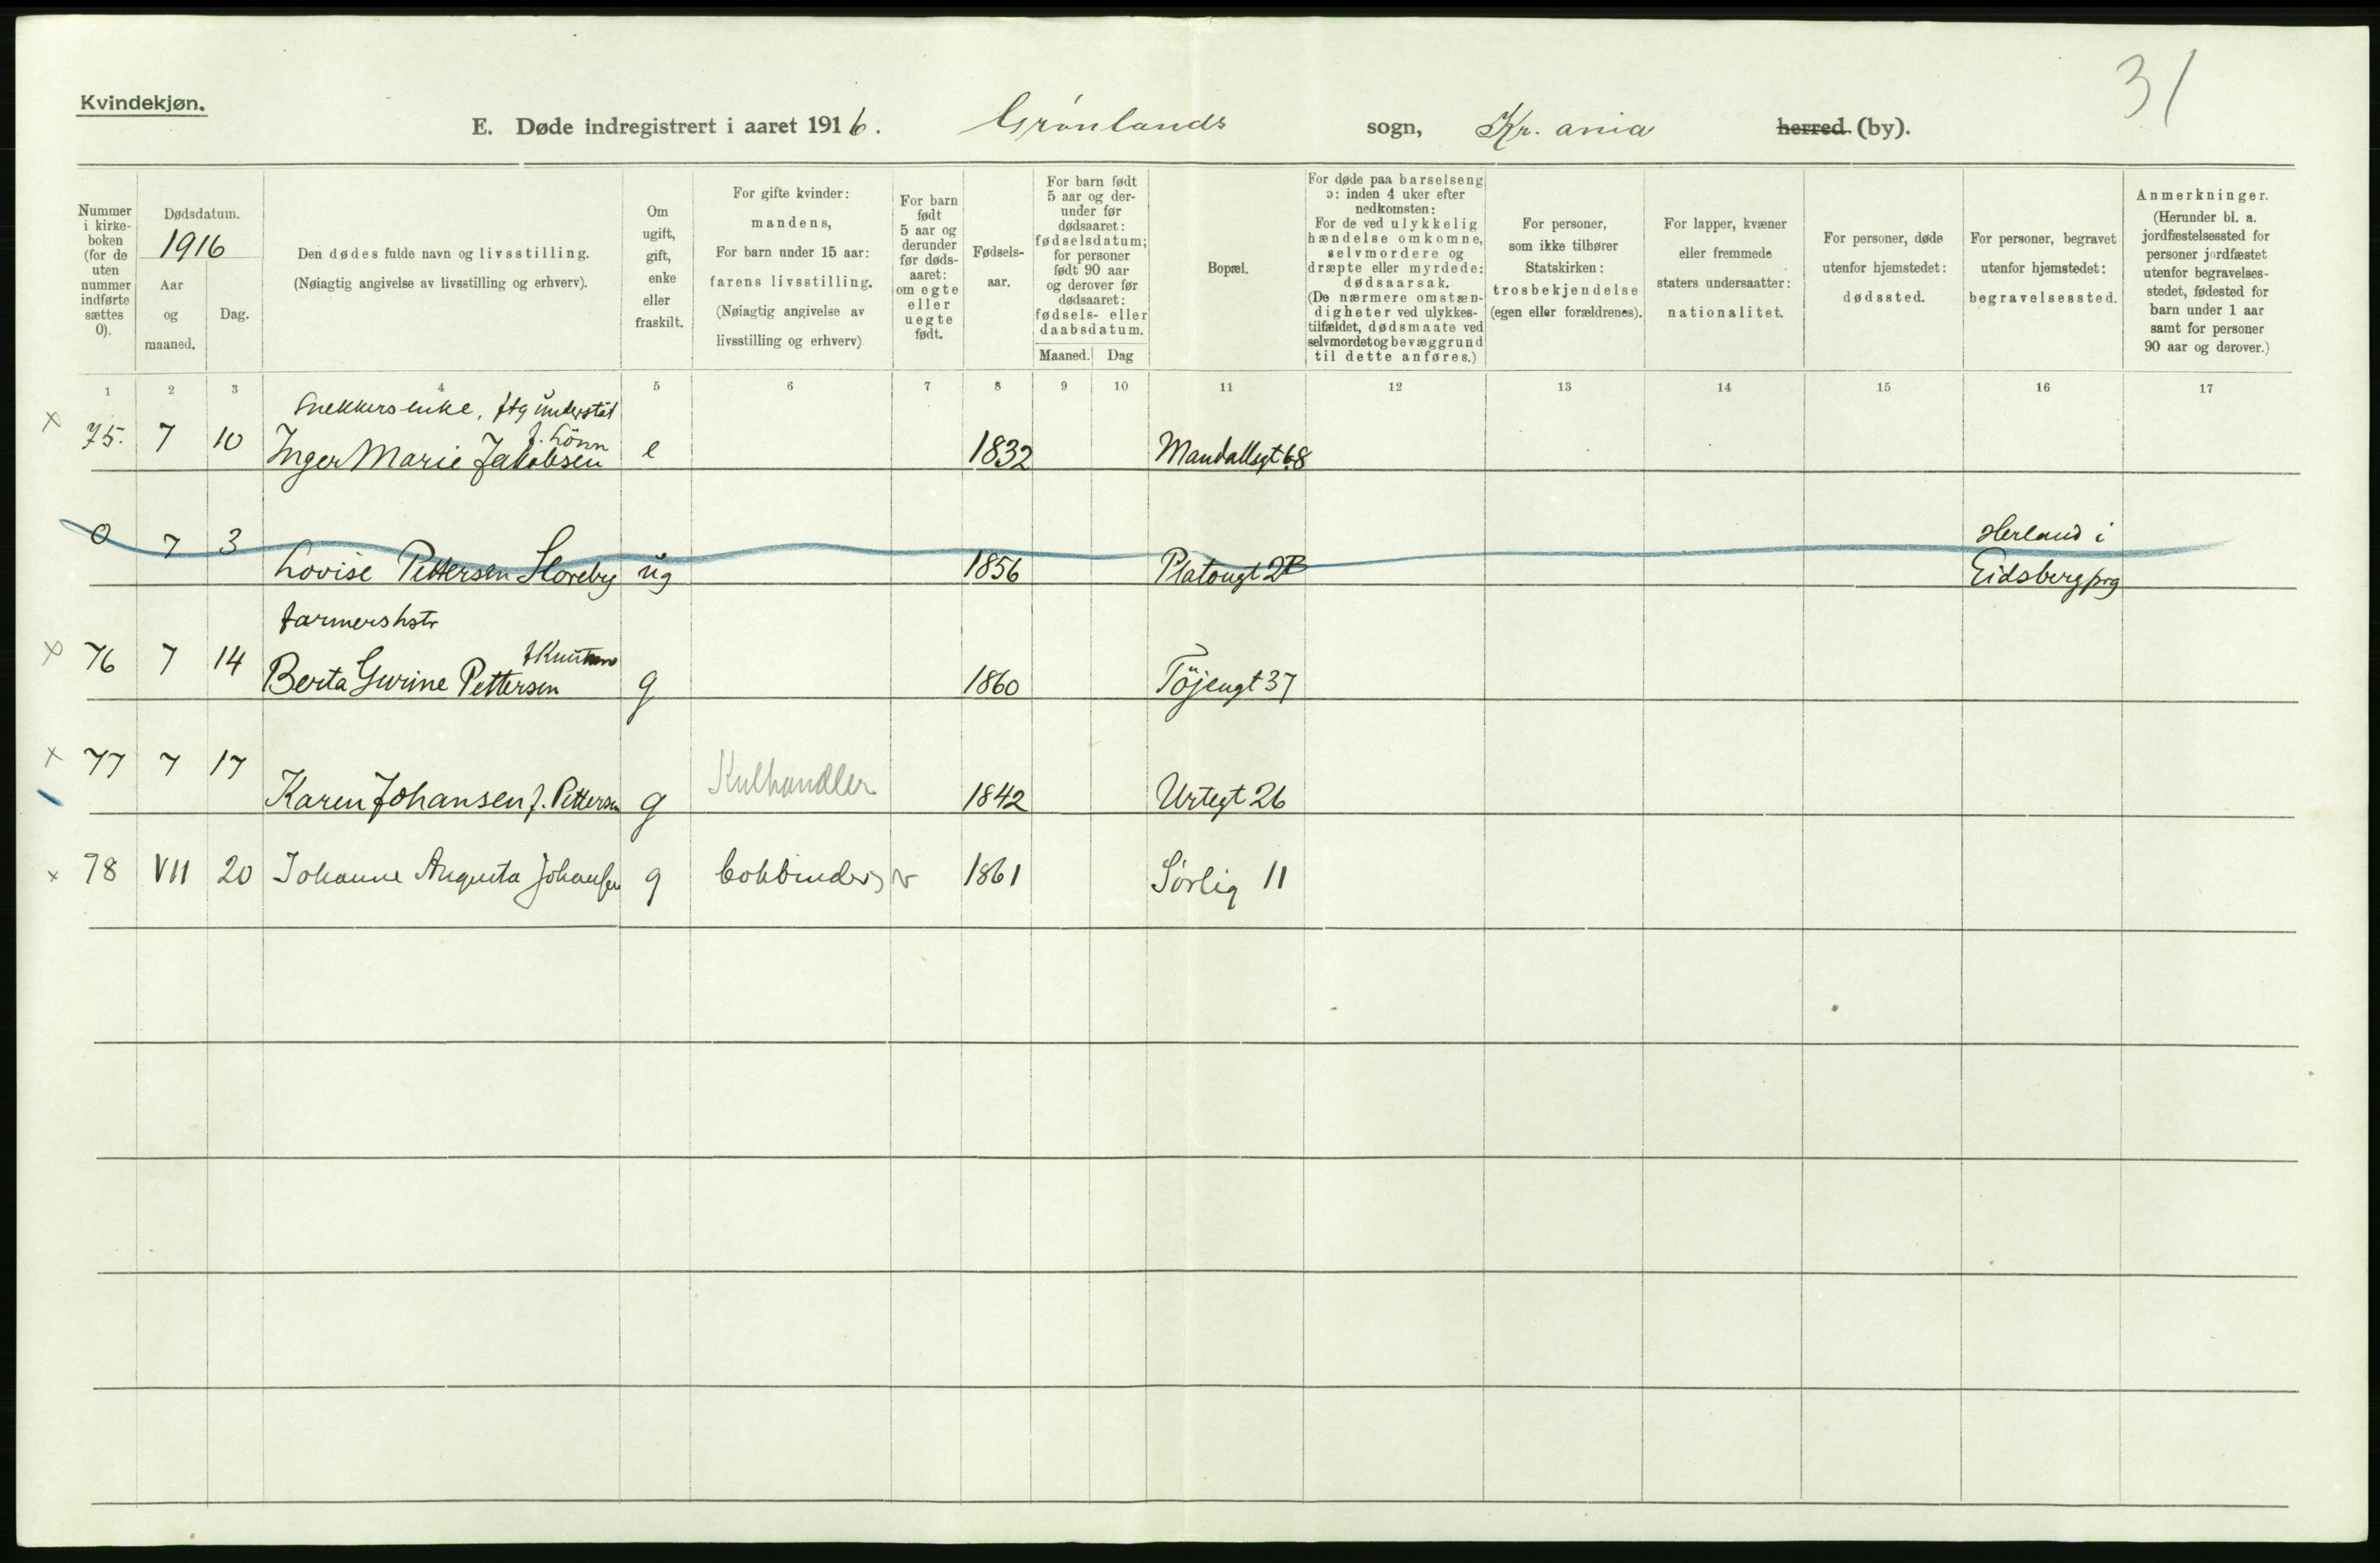 31
Kvindekjøn.
E. Døde indregistrert i aaret 1916. Grønlands sogn, Kr. ania herred (by).
Nummer i kirke- boken (for de uten nummer indførte sættes 0).
Dødsdatum.
1916
Aar og maaned.
Dag.
Den dødes fulde navn og livsstilling.
(Nøiagtig angivelse av livsstilling og erhverv).
Om ugift, gift, enke eller fraskilt.
For gifte kvinder:
mandens,
For barn under 15 aar:
farens livsstilling.
(Nøiagtig angivelse av
livsstilling og erhverv)
For barn født 5 aar og derunder før døds- aaret: om egte eller uegte født.
Fødsels- aar.
For barn født
5 aar og der-
under før
dødsaaret:
fødselsdatum;
for personer
født 90 aar
og derover før
dødsaaret:
fødsels- eller
daabsdatum.
Maaned. Dag
Bopæl.
For døde paa barselseng
ɔ: inden 4 uker efter
nedkomsten:
For de ved ulykkelig
hændelse omkomne,
selvmordere og
dræpte eller myrdede:
dødsaarsak.
(De nærmere omstæn-
digheter ved ulykkes-
tilfældet, dødsmaate ved
selvmordet og bevæggrund
til dette anføres.)
For personer,
som ikke tilhører
Statskirken:
trosbekjendelse
(egen eller forældrenes).
For lapper, kvæner
eller fremmede
staters undersaatter:
nationalitet.
For personer, døde
utenfor hjemstedet:
dødssted.
For personer, begravet
utenfor hjemstedet:
begravelsessted.
Anmerkninger.
(Herunder bl. a.
jordfæstelsessted for
personer jordfæstet
utenfor begravelses-
stedet, fødested for
barn under 1 aar
samt for personer
90 aar og derover.)
1 2 3 4 5 6 7 8 9 10 11 12 13 14 15 16 17
Snekkersenke, ftg understøt
f. Lönn
x 75. 7 10 Inger Marie Jakobsen e 1832 Mandallsgt 68
Herland i
0 7 3 Lovise Pettersen Sloreby ug 1856 Platougt 2B Eidsberg prg
farmershstr
x 76 7 14 Berta Gurine Pettersen g 1860 Töjengt 37
x 77 7 17 Karen Johansen f. Pettersen g Kulhandler 1842 Urtegt 26
x 78 VII 20 Johanne Augusta Johansen g bokbinder 1861 Sørlig 11